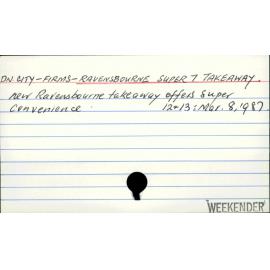 DN CITY-FIRMS-RAVENSBOURNE SUPER 7 TAKEAWAY.
new Ravensbourne takeaway offers super
convenience. 12+13: Mar. 8, 1987
WEEKENDER